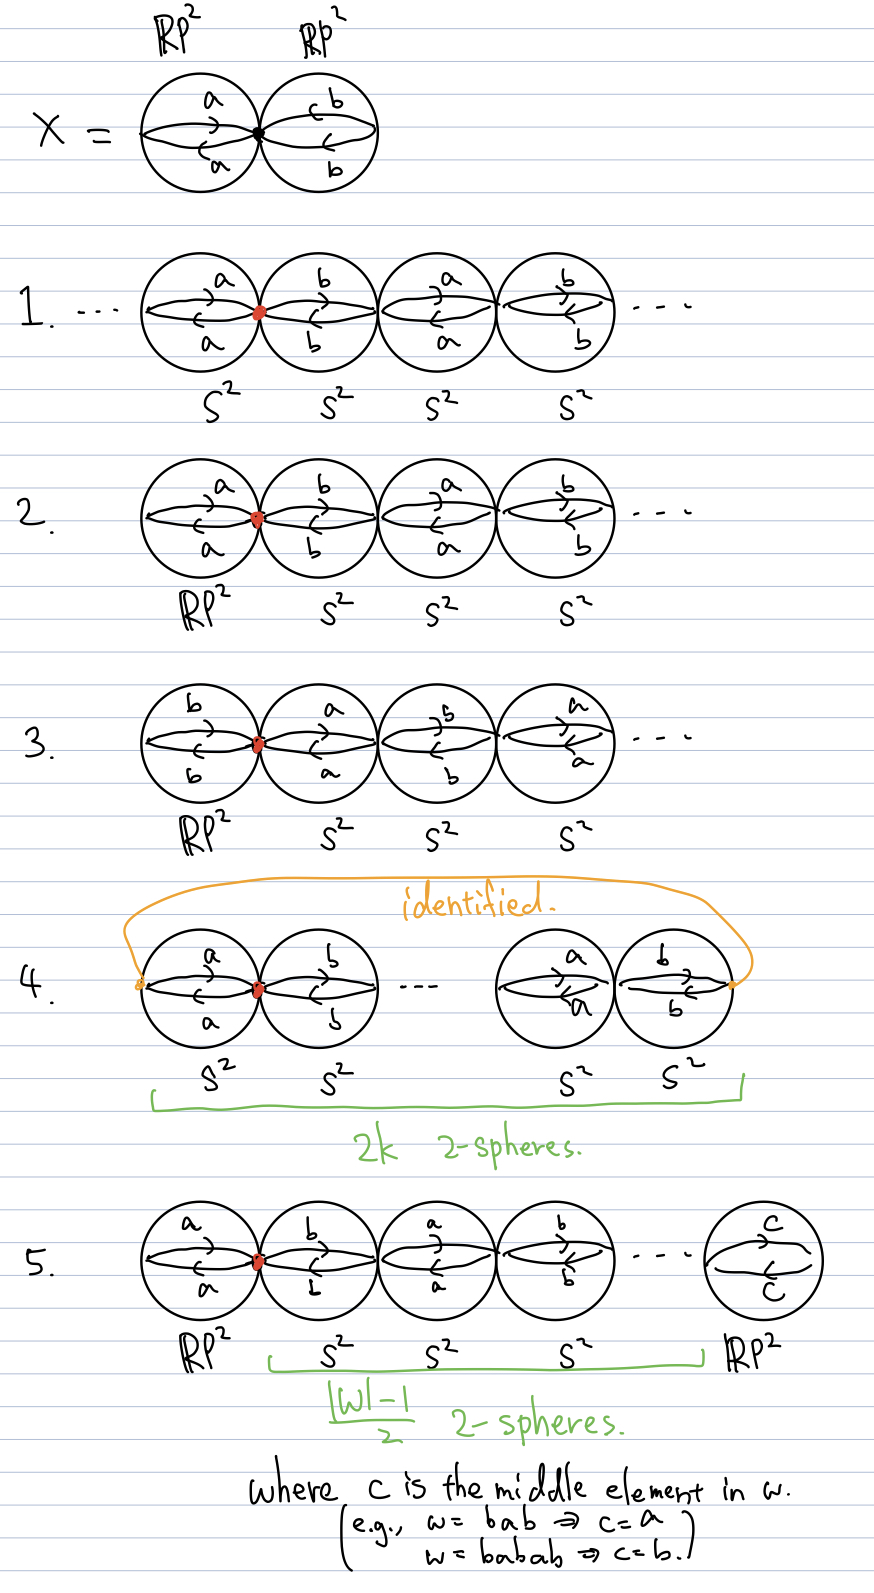 ℝP² ℝP²
a b
X =
a b
a b a b
1. ... ...
a b a b
S² S² S² S²
a b a b
2. ...
a b a b
ℝP² S² S² S²
b a b a
3. ...
b a b a
ℝP² S² S² S²
identified.
a b a b
4. ...
a b a b
S² S² S² S²
2k 2-spheres.
a b a b c
5. ...
a b a b c
ℝP² S² S² S² ℝP²
(|w|-1)/2 2-spheres.
where c is the middle element in w.
(e.g., w = bab ⇒ c=a
w = babab ⇒ c=b.)